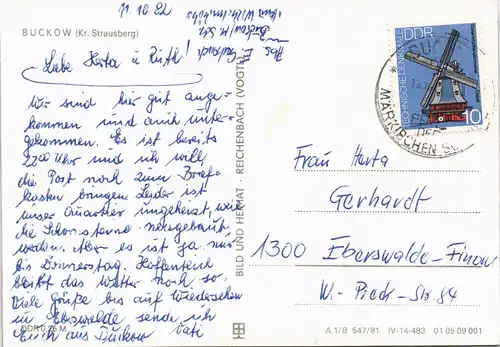 11.10.82
BUCKOW (Kr. Strausberg)
Abs. E.
Buckow/M. Sch.
Liebe Herta u. Ruth!
Wir sind hier gut ange-
kommen und auch unter-
gekommen. Es ist bereits
22.00 Uhr und ich will
die Post noch zum Brief-
kasten bringen. Leider ist
unser Quartier ungeheizt, weil
die Schornsteine neugebaut
werden. Aber es ist ja nur
bis Donnerstag. Hoffentlich
bleibt das Wetter noch so.
Viele Grüße bis auf Wiedersehen
in Eberswalde sende ich
Euch aus Buckow Vati
DDR 0,25 M
BILD UND HEIMAT · REICHENBACH (VOGTL)
TECHNISCHE DENKMALE
DDR
10
MÄRKISCHEN
Frau Herta
Gerhardt
1300 Eberswalde-Finow
W.-Pieck-Str. 84
A 1/B 547/81 IV-14-483 01 05 09 001